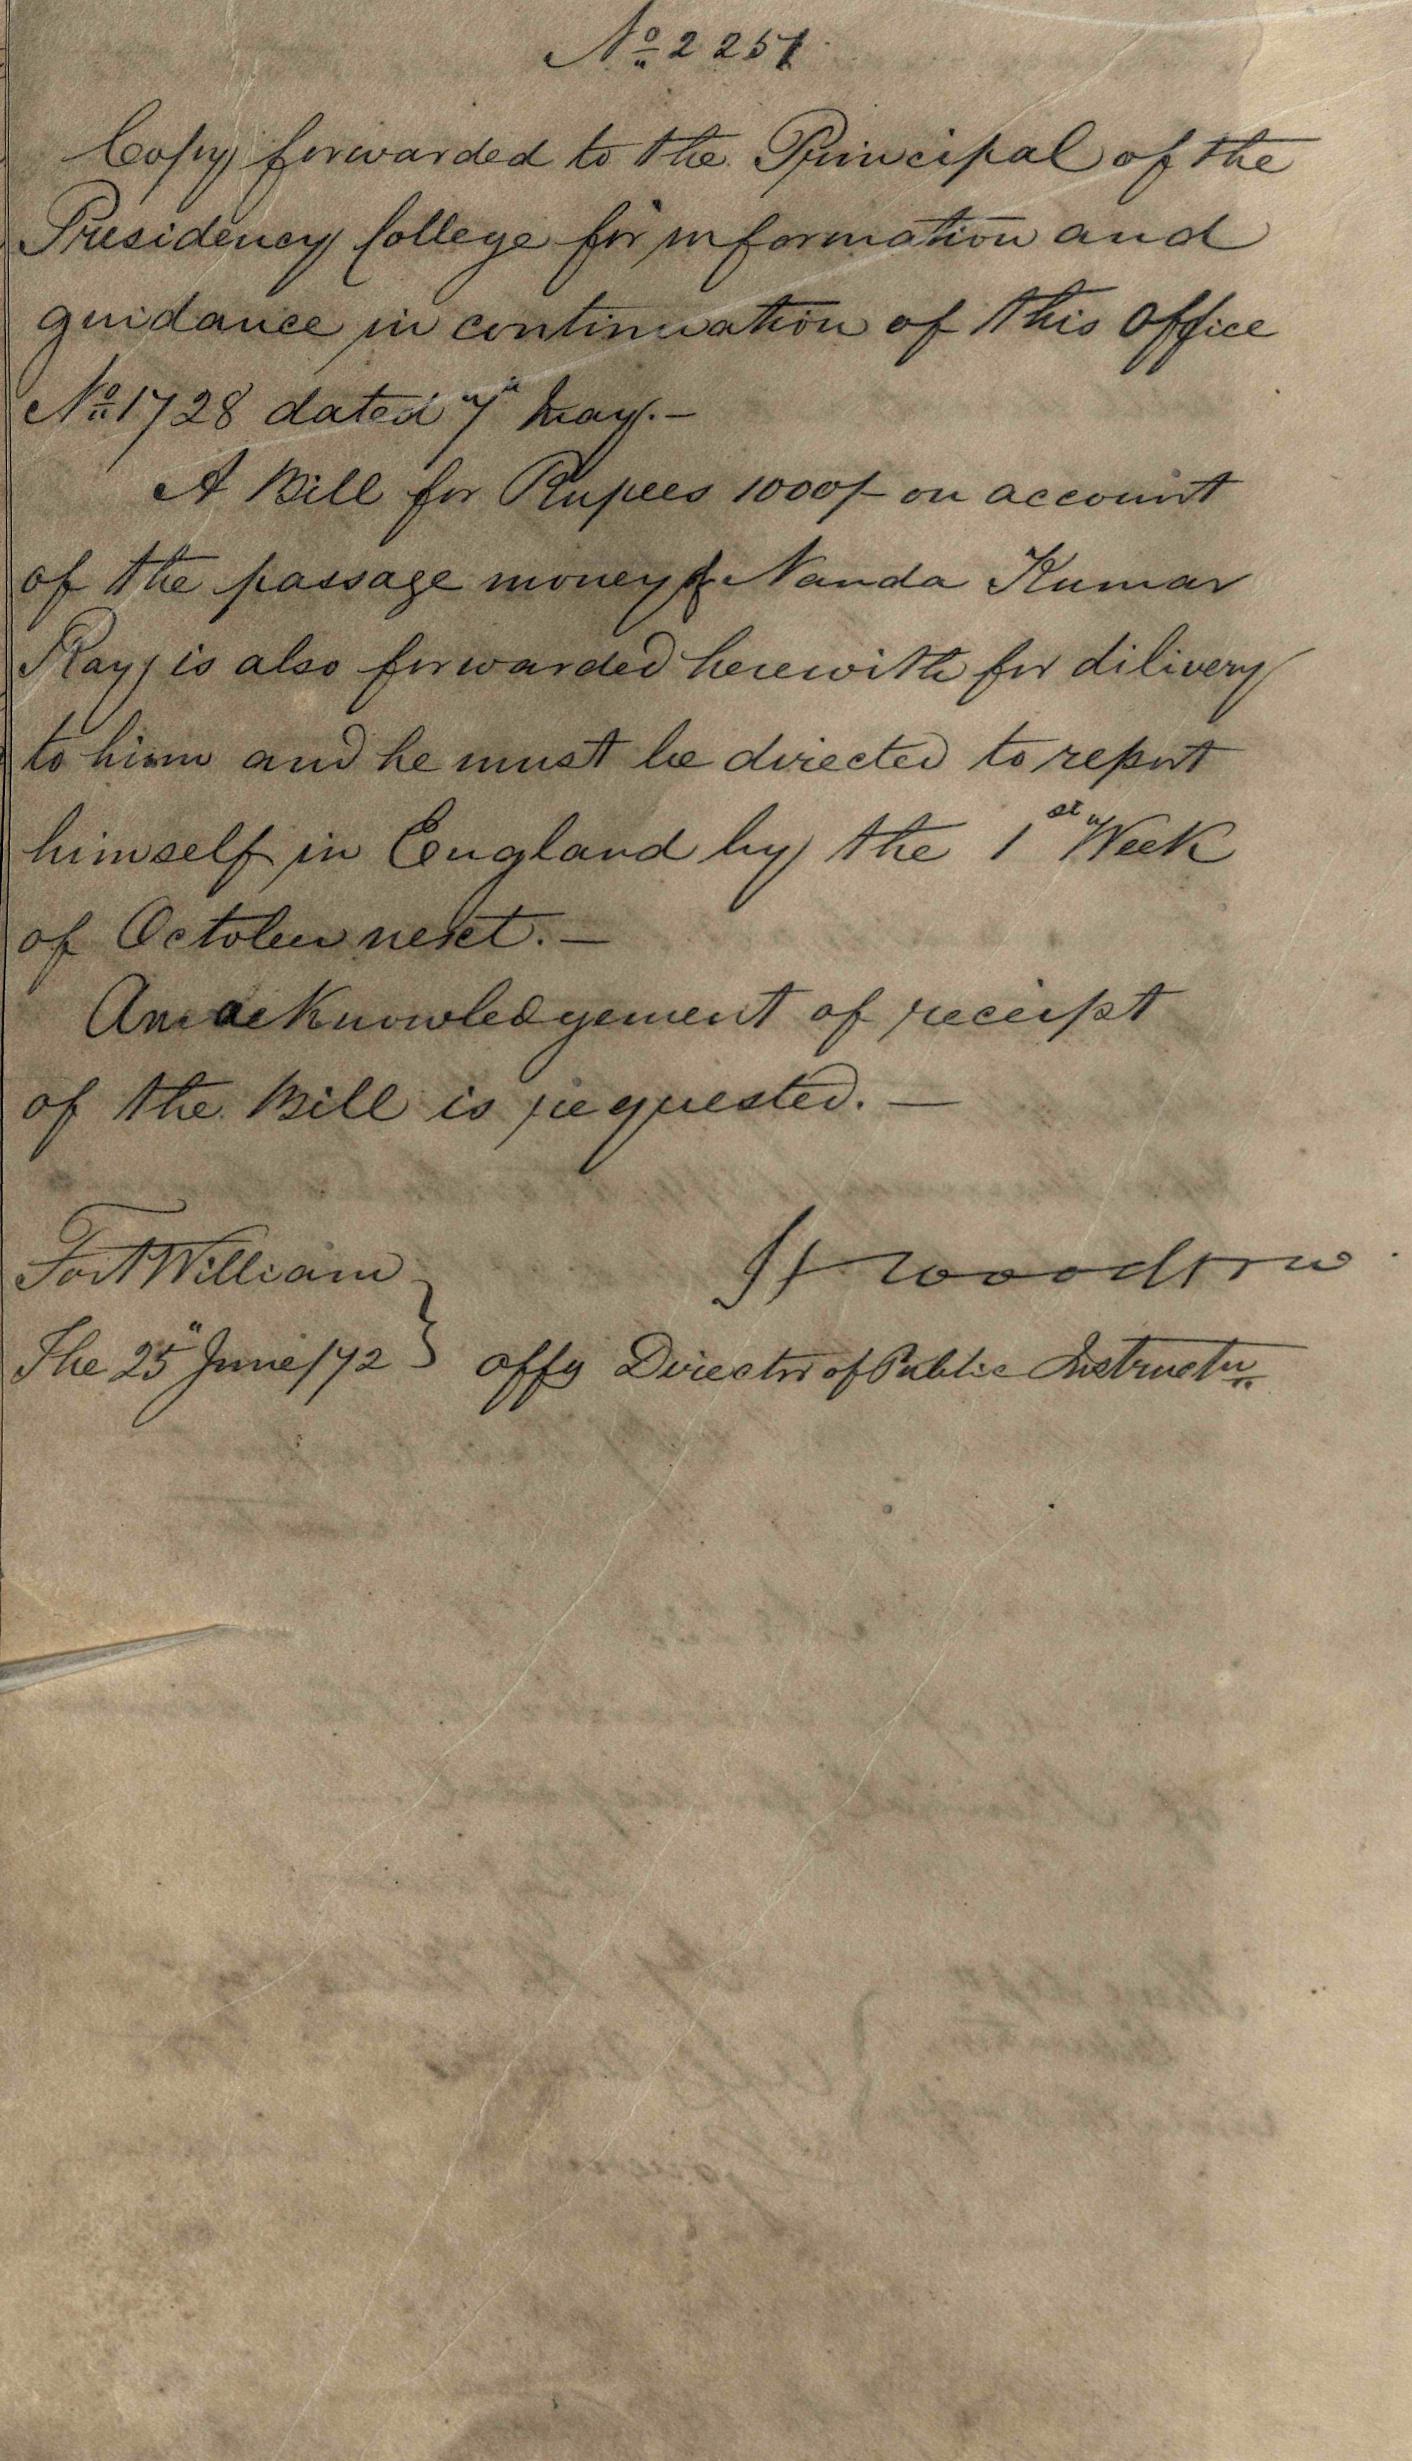 No 2251
Copy forwarded to the Principal of the
Presidency College for information and
guidance in continuation of this Office
No 1728 dated 7th May. —
A Bill for Rupees 1000/- on account
of the passage money of Nanda Kumar
Ray, is also forwarded herewith for dilivery
to him and he must be directed to report
himself in England by the 1st Week
of October next. —
An acknowledgement of receipt
of the Bill is requested. —
Fort William
H Woodrow
The 25" June/72
offg Director of Public Instructn